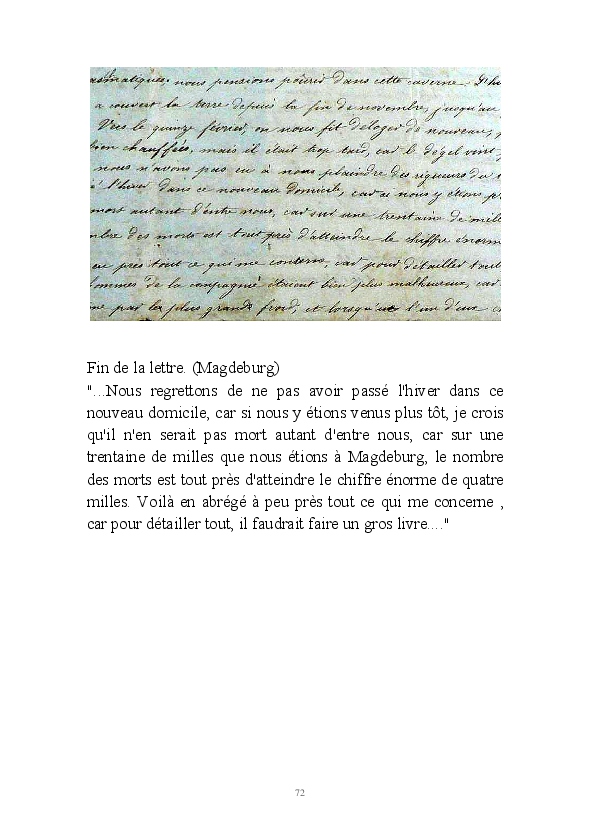 asmatiques, nous pensions pourir dans cette caverne.
a couvert la terre depuis la fin de novembre, jusqu'au
Vers le quinze février, on nous fit déloger de nouveau,
bien chauffés, mais il était trop tard, car le dégel vint
nous n'avons pas eu à nous plaindre des rigueurs du
l'hiver dans ce nouveau domicile, car si nous y étions
mort autant d'entre nous, car sur une trentaine de mille
nombre des morts est tout près d'atteindre le chiffre énorme
peu près tout ce qui me concerne, car pour détailler tout
hommes de la compagnie étaient bien plus malheureux, car
par les plus grands froids, et lorsqu'un l'un d'eux
Fin de la lettre. (Magdeburg)
"...Nous regrettons de ne pas avoir passé l'hiver dans ce
nouveau domicile, car si nous y étions venus plus tôt, je crois
qu'il n'en serait pas mort autant d'entre nous, car sur une
trentaine de milles que nous étions à Magdeburg, le nombre
des morts est tout près d'atteindre le chiffre énorme de quatre
milles. Voilà en abrégé à peu près tout ce qui me concerne ,
car pour détailler tout, il faudrait faire un gros livre...."
72